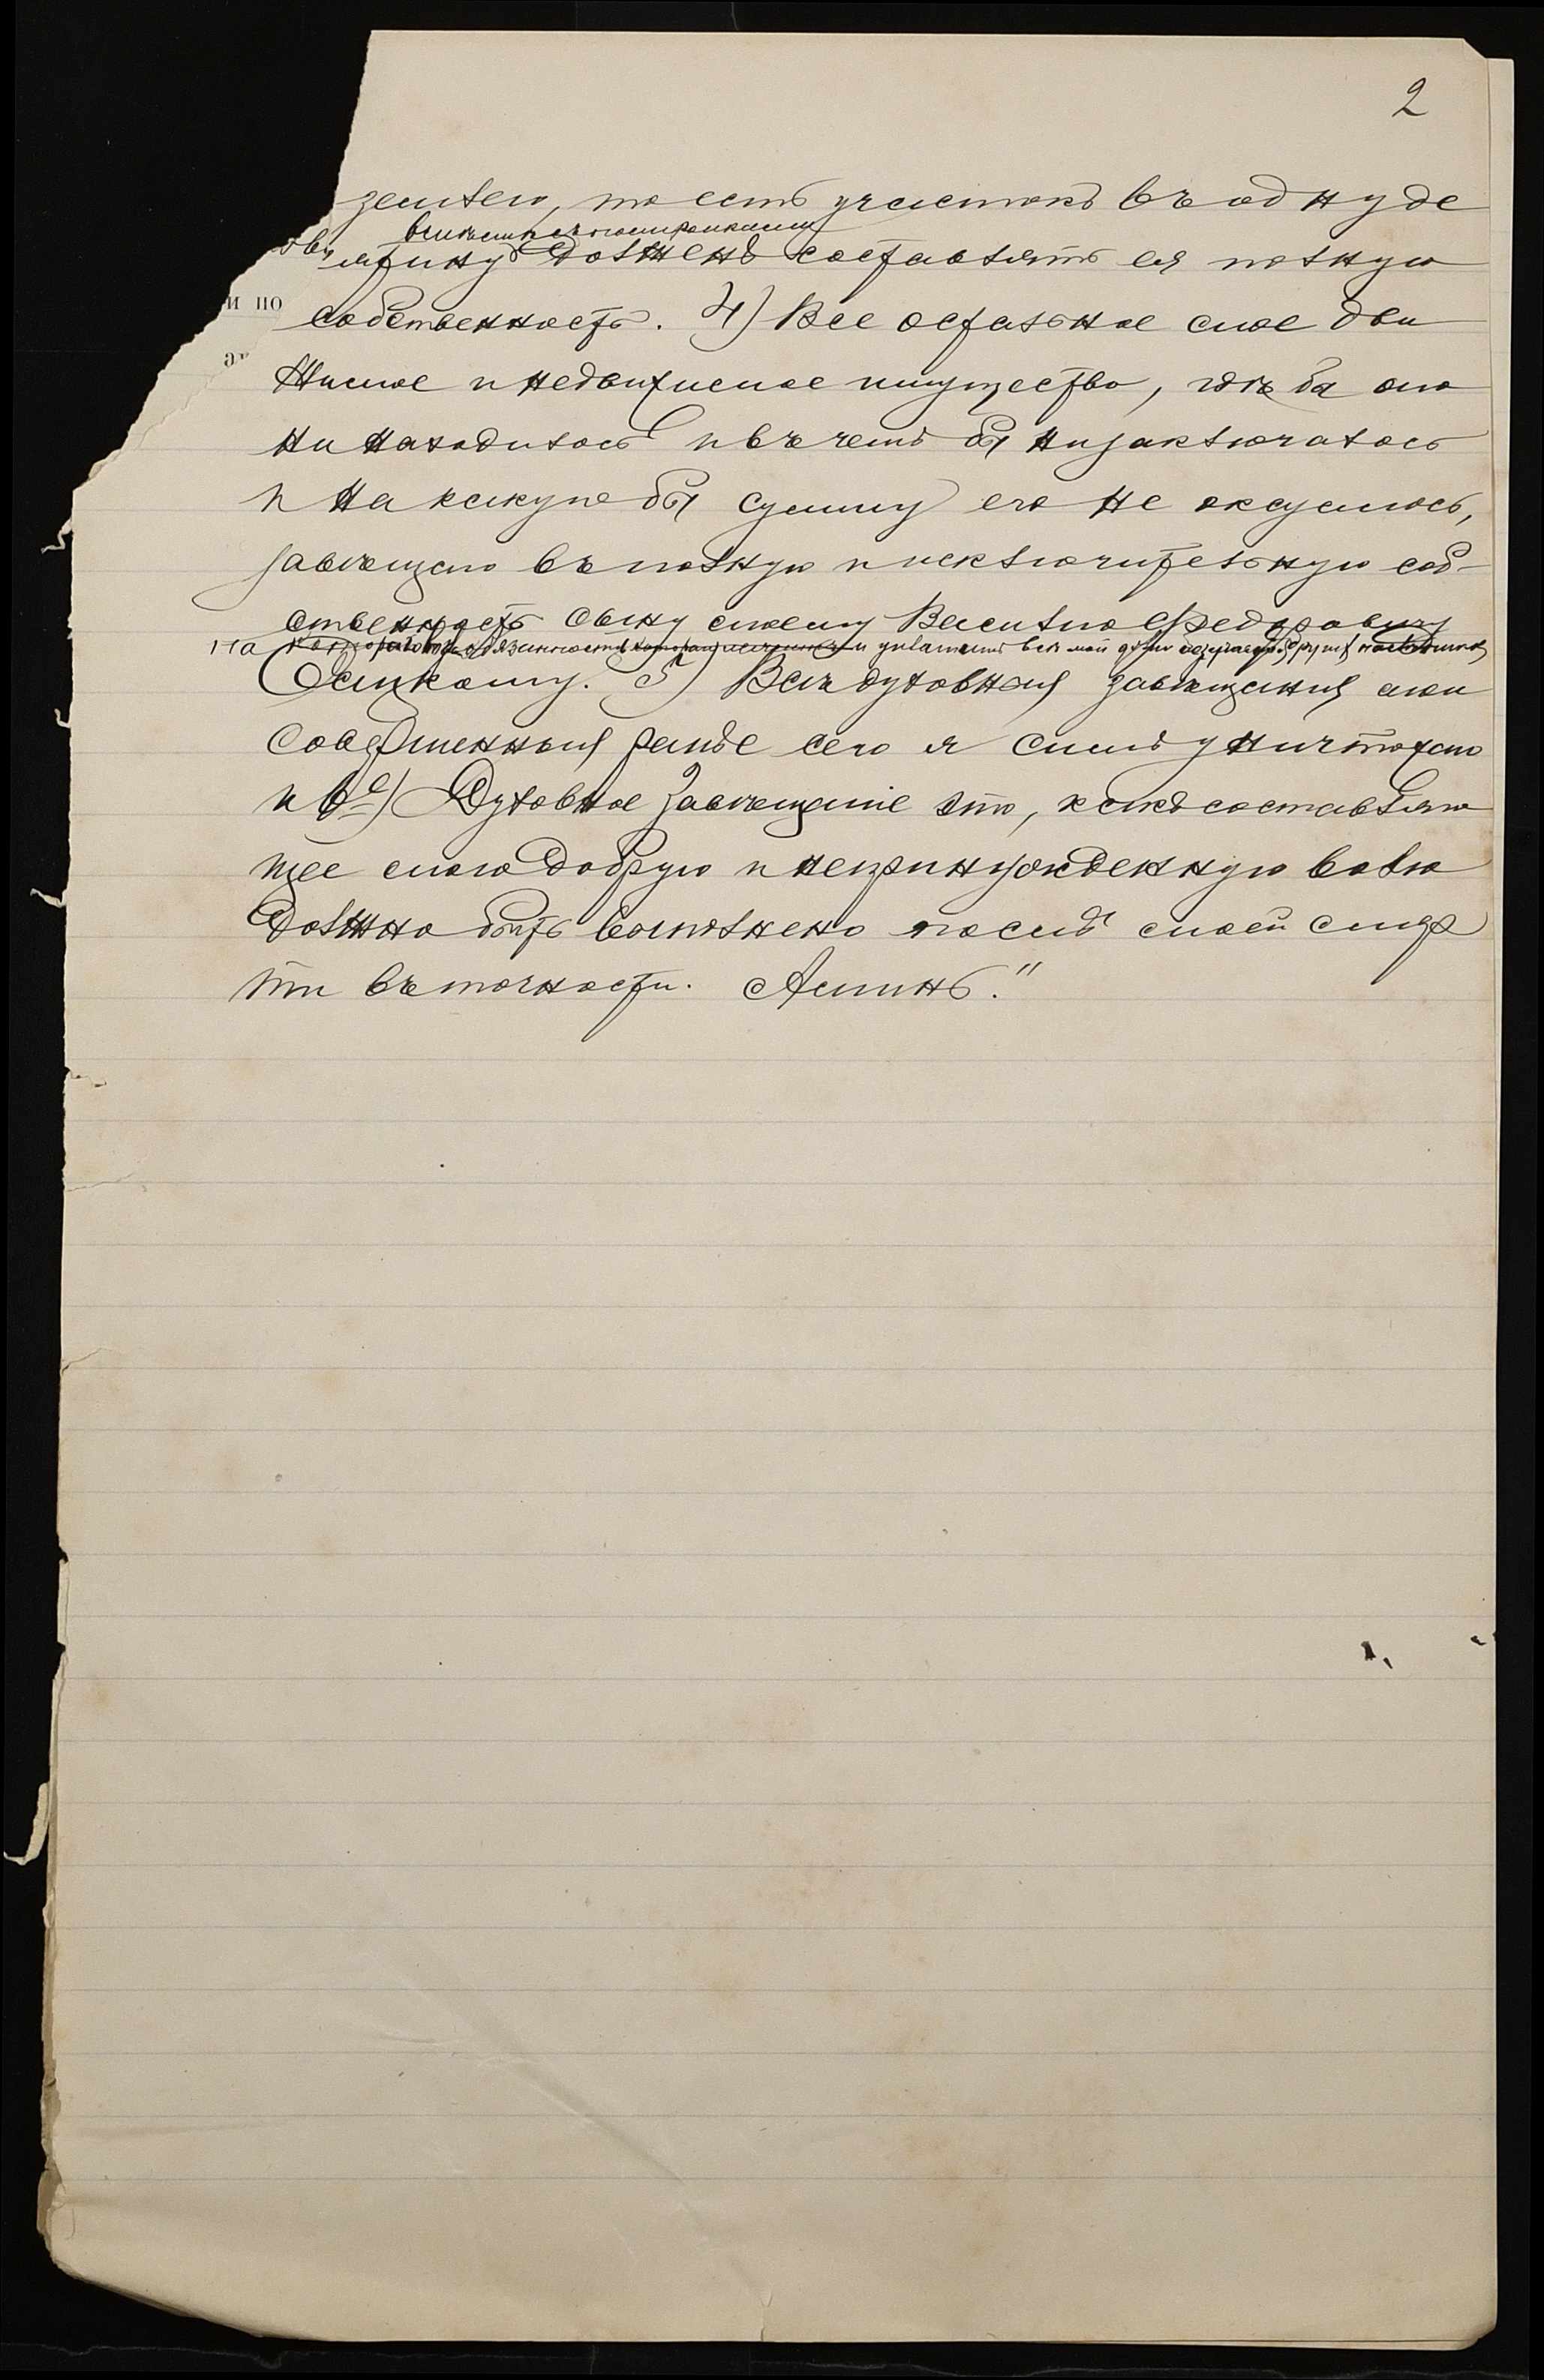 2
землею, то есть участокъ въ одну де
вмѣстѣ съ постройками
сятину долженъ составлять ея полную
и по
собственность. 4) Все остальное мое дви
жимое и недвижимое имущество, гдѣ бы оно
ни находилось и въ чемъ бы ни заключалось
и на какую бы сумму его не оказалось,
завѣщаю въ полную и исключительную соб-
ственность сыну моему Василію Федоровичу
на обязанность и уплатить всѣ мои долги
Сецкому. 5) Всѣ духовныя завѣщанія мои
совершенныя ранѣе сего я симъ уничтожаю
и 6е) Духовное завѣщаніе это, какъ составляю
щее мою добрую и непринужденную волю
должно быть выполнено послѣ моей смер
ти въ точности. Аминь."